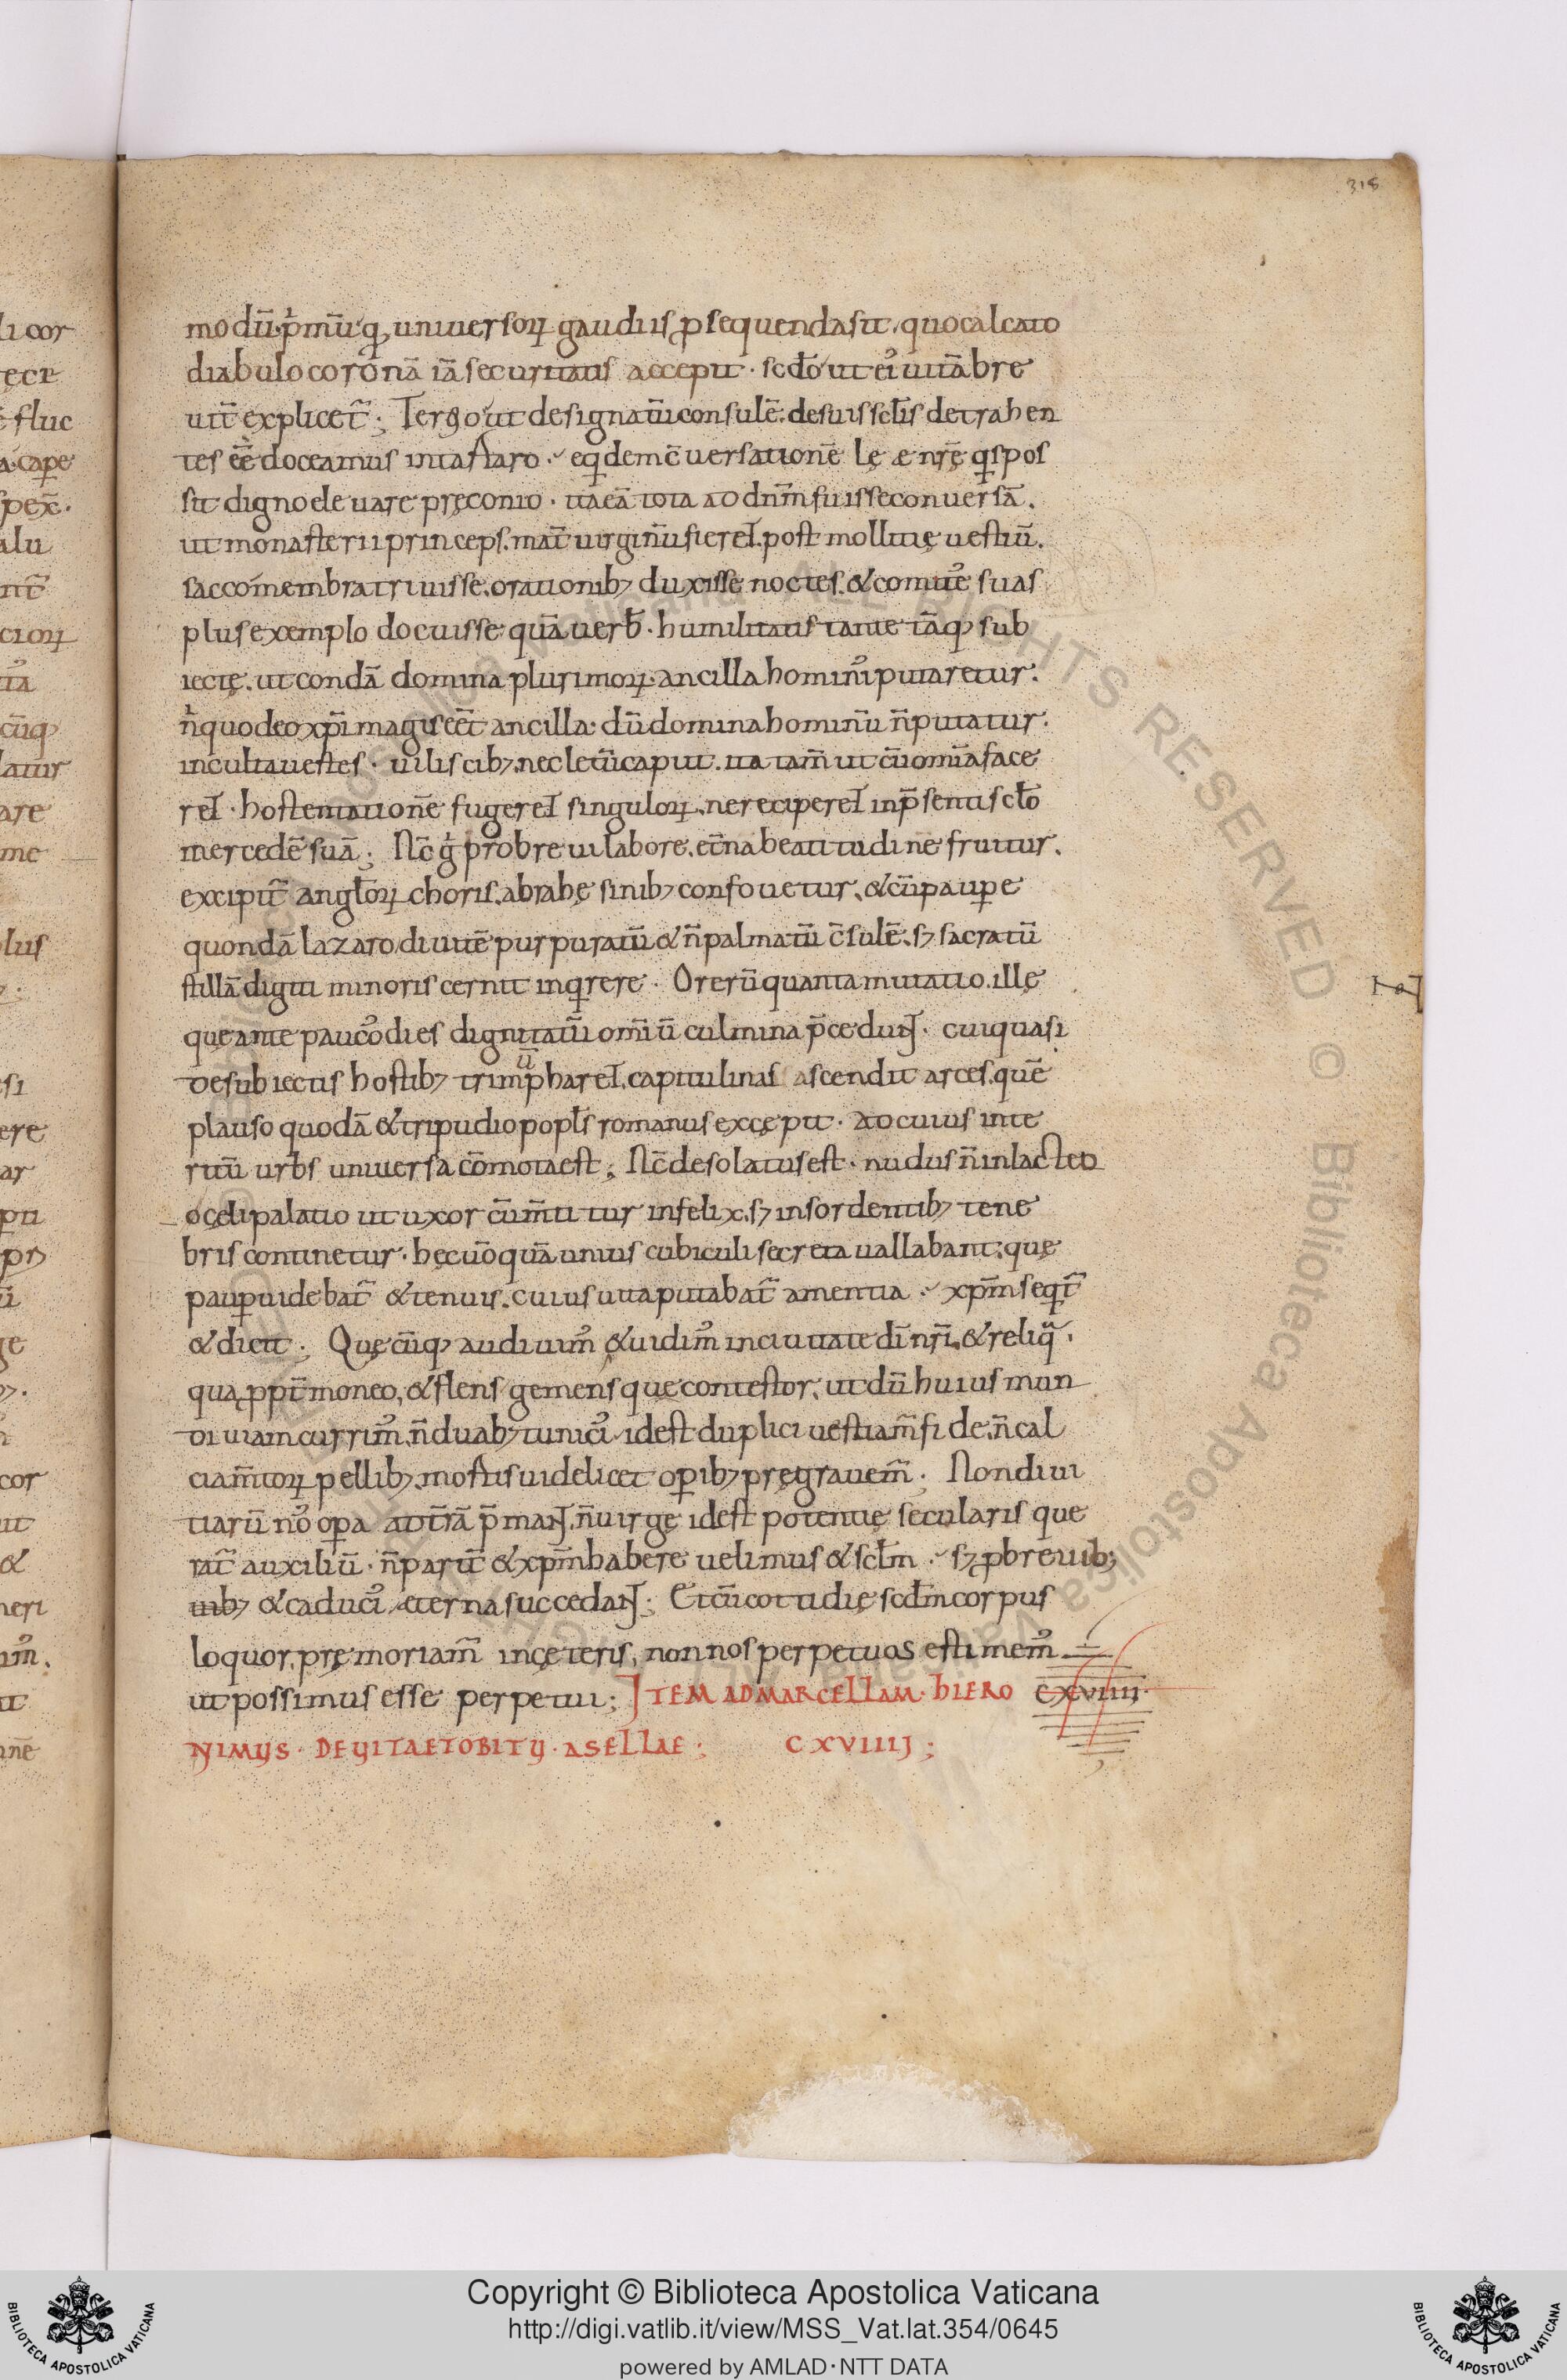 318
modū· pͥmū q; universoꝝ gaudiis ꝓsequenda sit. quo calcato
diabulo coronā iā securitatis accepit · scdo ut eiꝰ vitā bre
vit̄ explicet᷑; Tergo ut designatū consulē. de suis sctis detrahen
tes eē doceamus in taſtaro · eqͥdem c̄versationē leæ nrę qͥs pos
sit digno elevare pręconio · ita eā tota ad dnm fuisse conversā.
ut monasterii princeps. mat̄ virginū fieret. post mollitię vestiū.
sacco membra trivisse. orationibꝫ duxisse noctes. & comitē suas
plus exemplo docuisse quā verb̄ · humilitatis tante tāq; sub
iectę. ut condā domina plurimoꝝ. ancilla hominiꝰ putaretur.
nͥ quod eo xp̄i magis eēt ancilla. dū domina hominū n̄ putatur.
inculta vestes · vilis cibꝫ. neclectū caput. ita tam̄ ut cū omīa face
ret · hostentationē fugeret singuloꝝ. ne reciperet in p̄senti sclo
mercedē suā; Nc̄ gͥ pro brevi labore. et̄na beatitudine fruitur.
excipit᷑ angloꝝ choris. abrahę sinibꝫ confovetur. & cū paupe
quondā lazaro. divitē purpuratū & n̄ palmatū c̄sulē. sꝫ sacratū
stillā digiti minoris cernit inqͥrere · O rerū quanta mutatio. ille
que ante paucoꝰ dies dignitatū omīū culmina p̄cedunt · cui quasi
ū
de subiectis hostibꝫ trimpharet. capitulinas ascendit arces. quē
plauso quodā & tripudio popls romanus excępit · ad cuius inte
ritū urbs universa cōmota est; Nc̄ desolatus est · nudus n̄ in lacteo
ocęli palatio ut uxor cūm̄titur infelix. sꝫ in sordentibꝫ tene
bris continetur · hęc v̄o quā unius cubiculi secreta vallabant. quę
paup videbat᷑ & tenuis. cuius vita putabat᷑ amentia · xpm̄ seqͥt᷑
& dicit; Quęcūq; audivimꝰ & vidimꝰ in civitate dī nr̄i. & reliqͣ.
qua ꝓpt̄ moneo, & flens gemensque contestor. ut dū huius mun
di viam currimꝰ. n̄ duabꝫ tuniciꝰ id est duplici vestiam̄ fide. n̄ cal
ciam̄toꝝ pellibꝫ. mostis videlicet opibꝫ pręgravem̄ · Non divi
tiarū noꝰ opa ad t̄rā p̄mant. n̄ virgę id est potentię secularis que
rat᷑ auxiliū · n̄ parit̄ & xpm̄ habere velimus & sclm · sꝫ ꝓ brevib;
vibꝫ & caduciꝰ eterna succedant; Et cū cottidię scdm corpus
loquor. pręmoriam̄ in cęteris, non nos perpetuos estimemꝰ
ut possimus esse perpetui; ITEM AD MARCELLAM · HIERO CXVIIII ·
NIMUS · DE VITA ET OBITU · ASELLAE; CXVIIIJ;
Copyright © Biblioteca Apostolica Vaticana
http://digi.vatlib.it/view/MSS_Vat.lat.354/0645
powered by AMLAD·NTT DATA